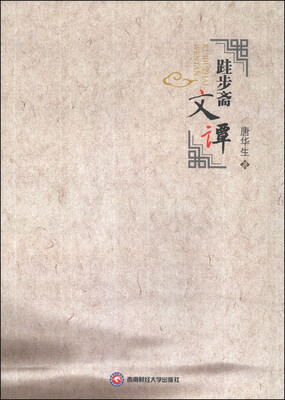 跬步斋
文谭
唐华生 著
西南财经大学出版社